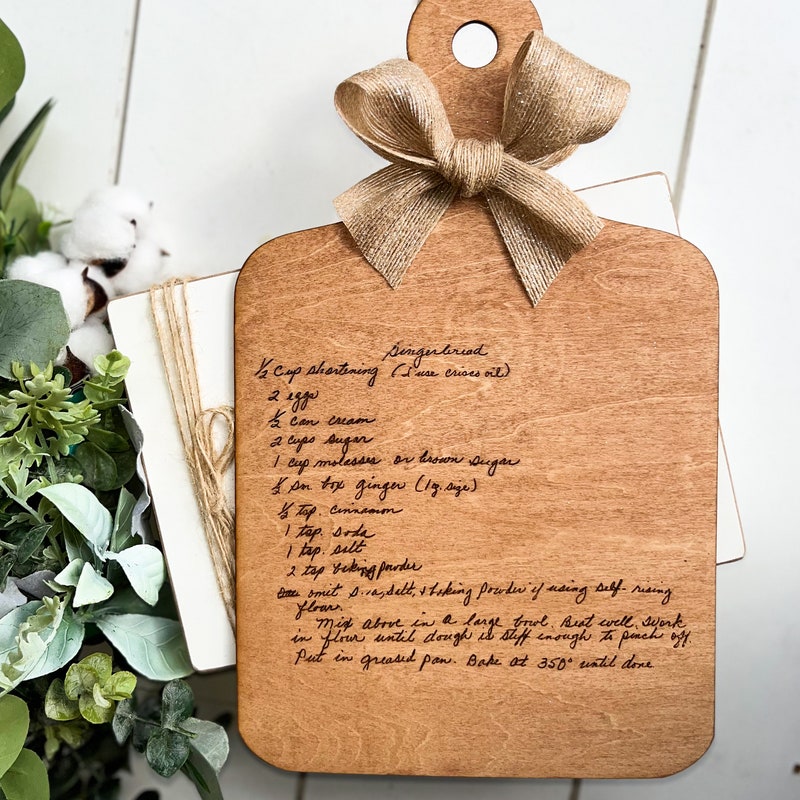 Gingerbread
½ Cup shortening (I use crisco oil)
2 eggs
½ can cream
2 cups sugar
1 cup molasses or brown sugar
½ sm. box ginger (1 oz. size)
½ tsp. cinnamon
1 tsp. soda
1 tsp. salt
2 tsp baking powder
omit soda, salt, & baking powder if using self-rising
flour.
Mix above in a large bowl. Beat well. Work
in flour until dough is stiff enough to pinch off.
Put in greased pan. Bake at 350° until done